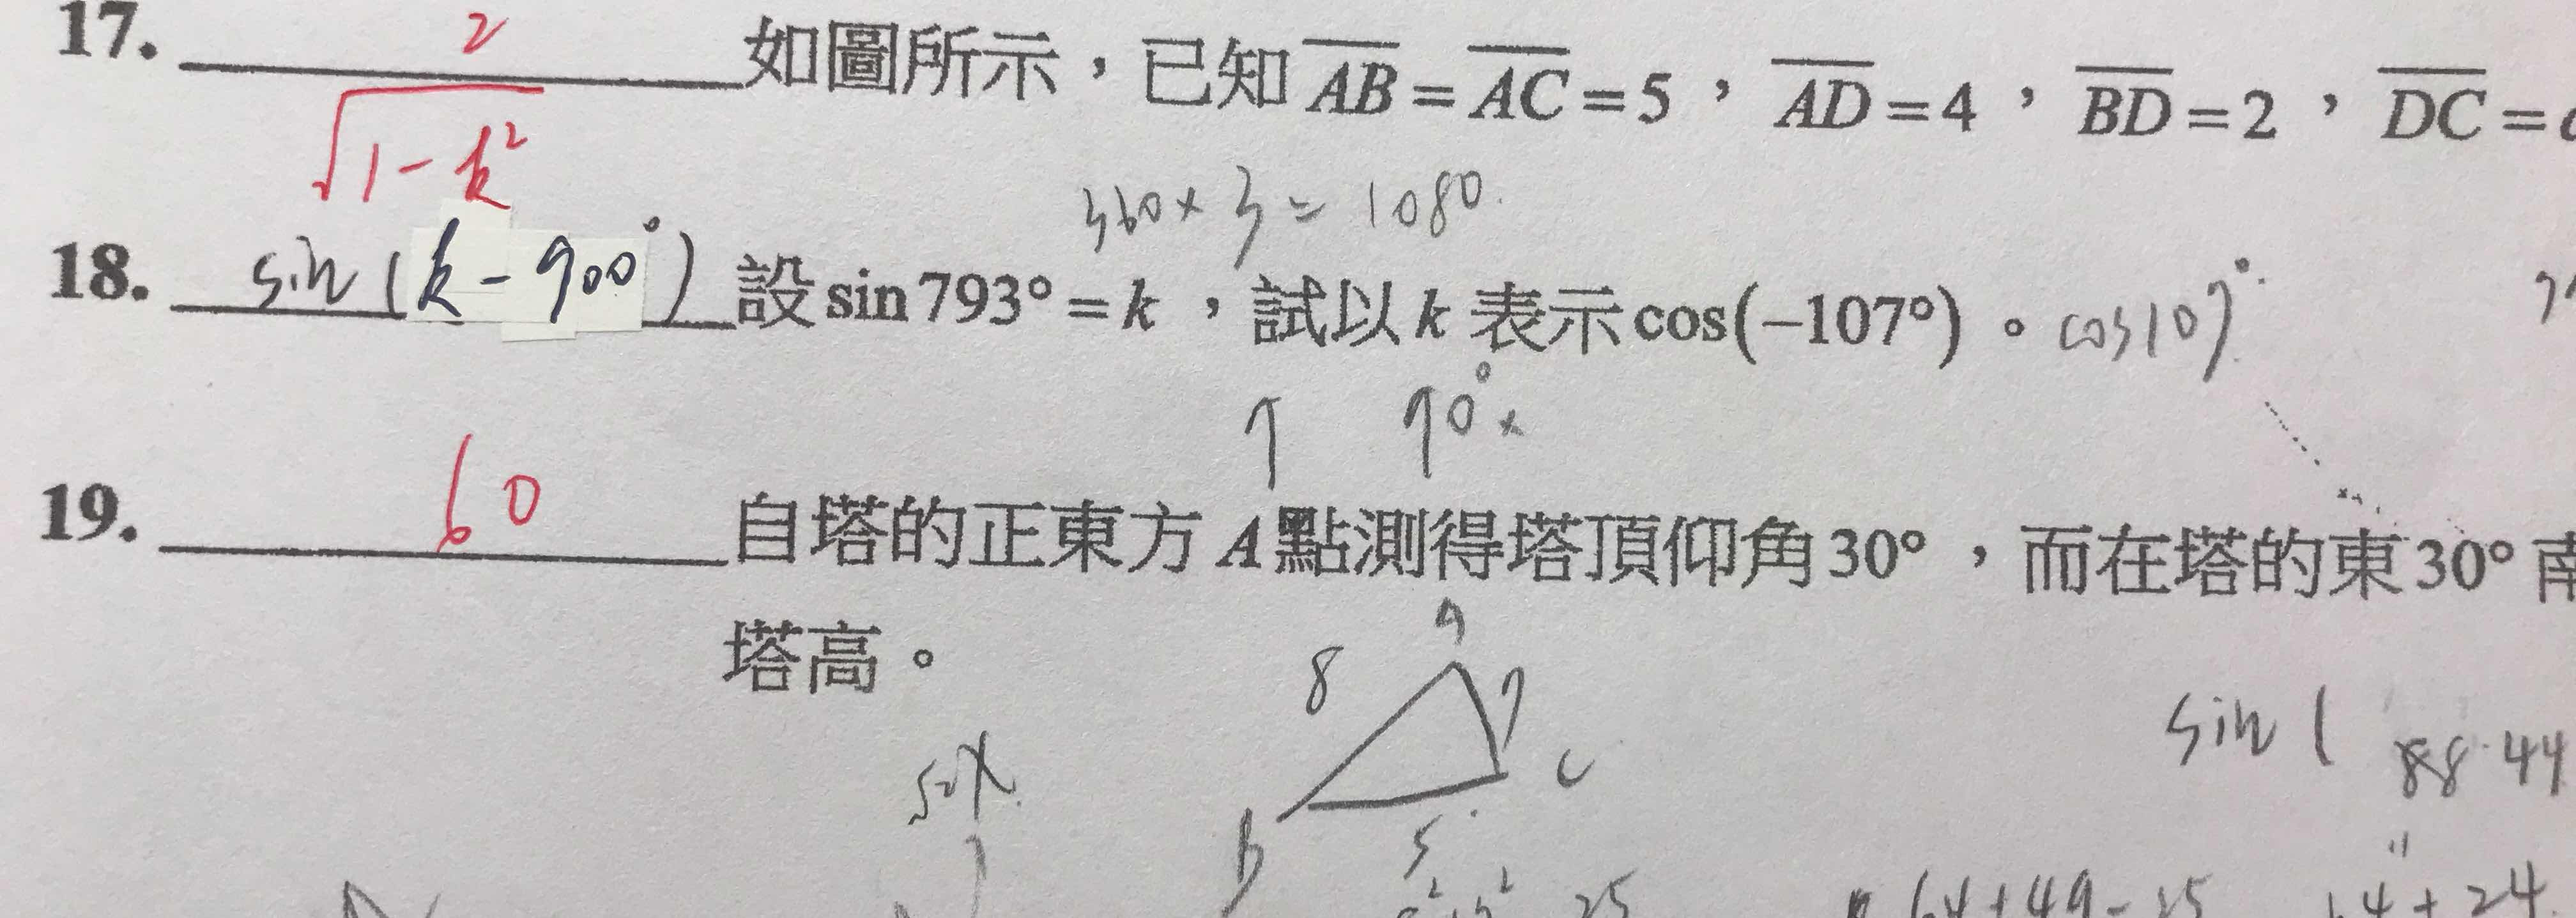 17. 2 如圖所示，已知 AB = AC = 5，AD = 4，BD = 2，DC =
√1-k²
360 × 3 = 1080.
18. sin(k-900°) 設 sin 793° = k，試以 k 表示 cos(−107°)。cos107°
90° ×
19. 60 自塔的正東方 A 點測得塔頂仰角 30°，而在塔的東 30° 南
塔高。
8 7 C
sin(
88 44
B 5
25 64+49-25 64+24